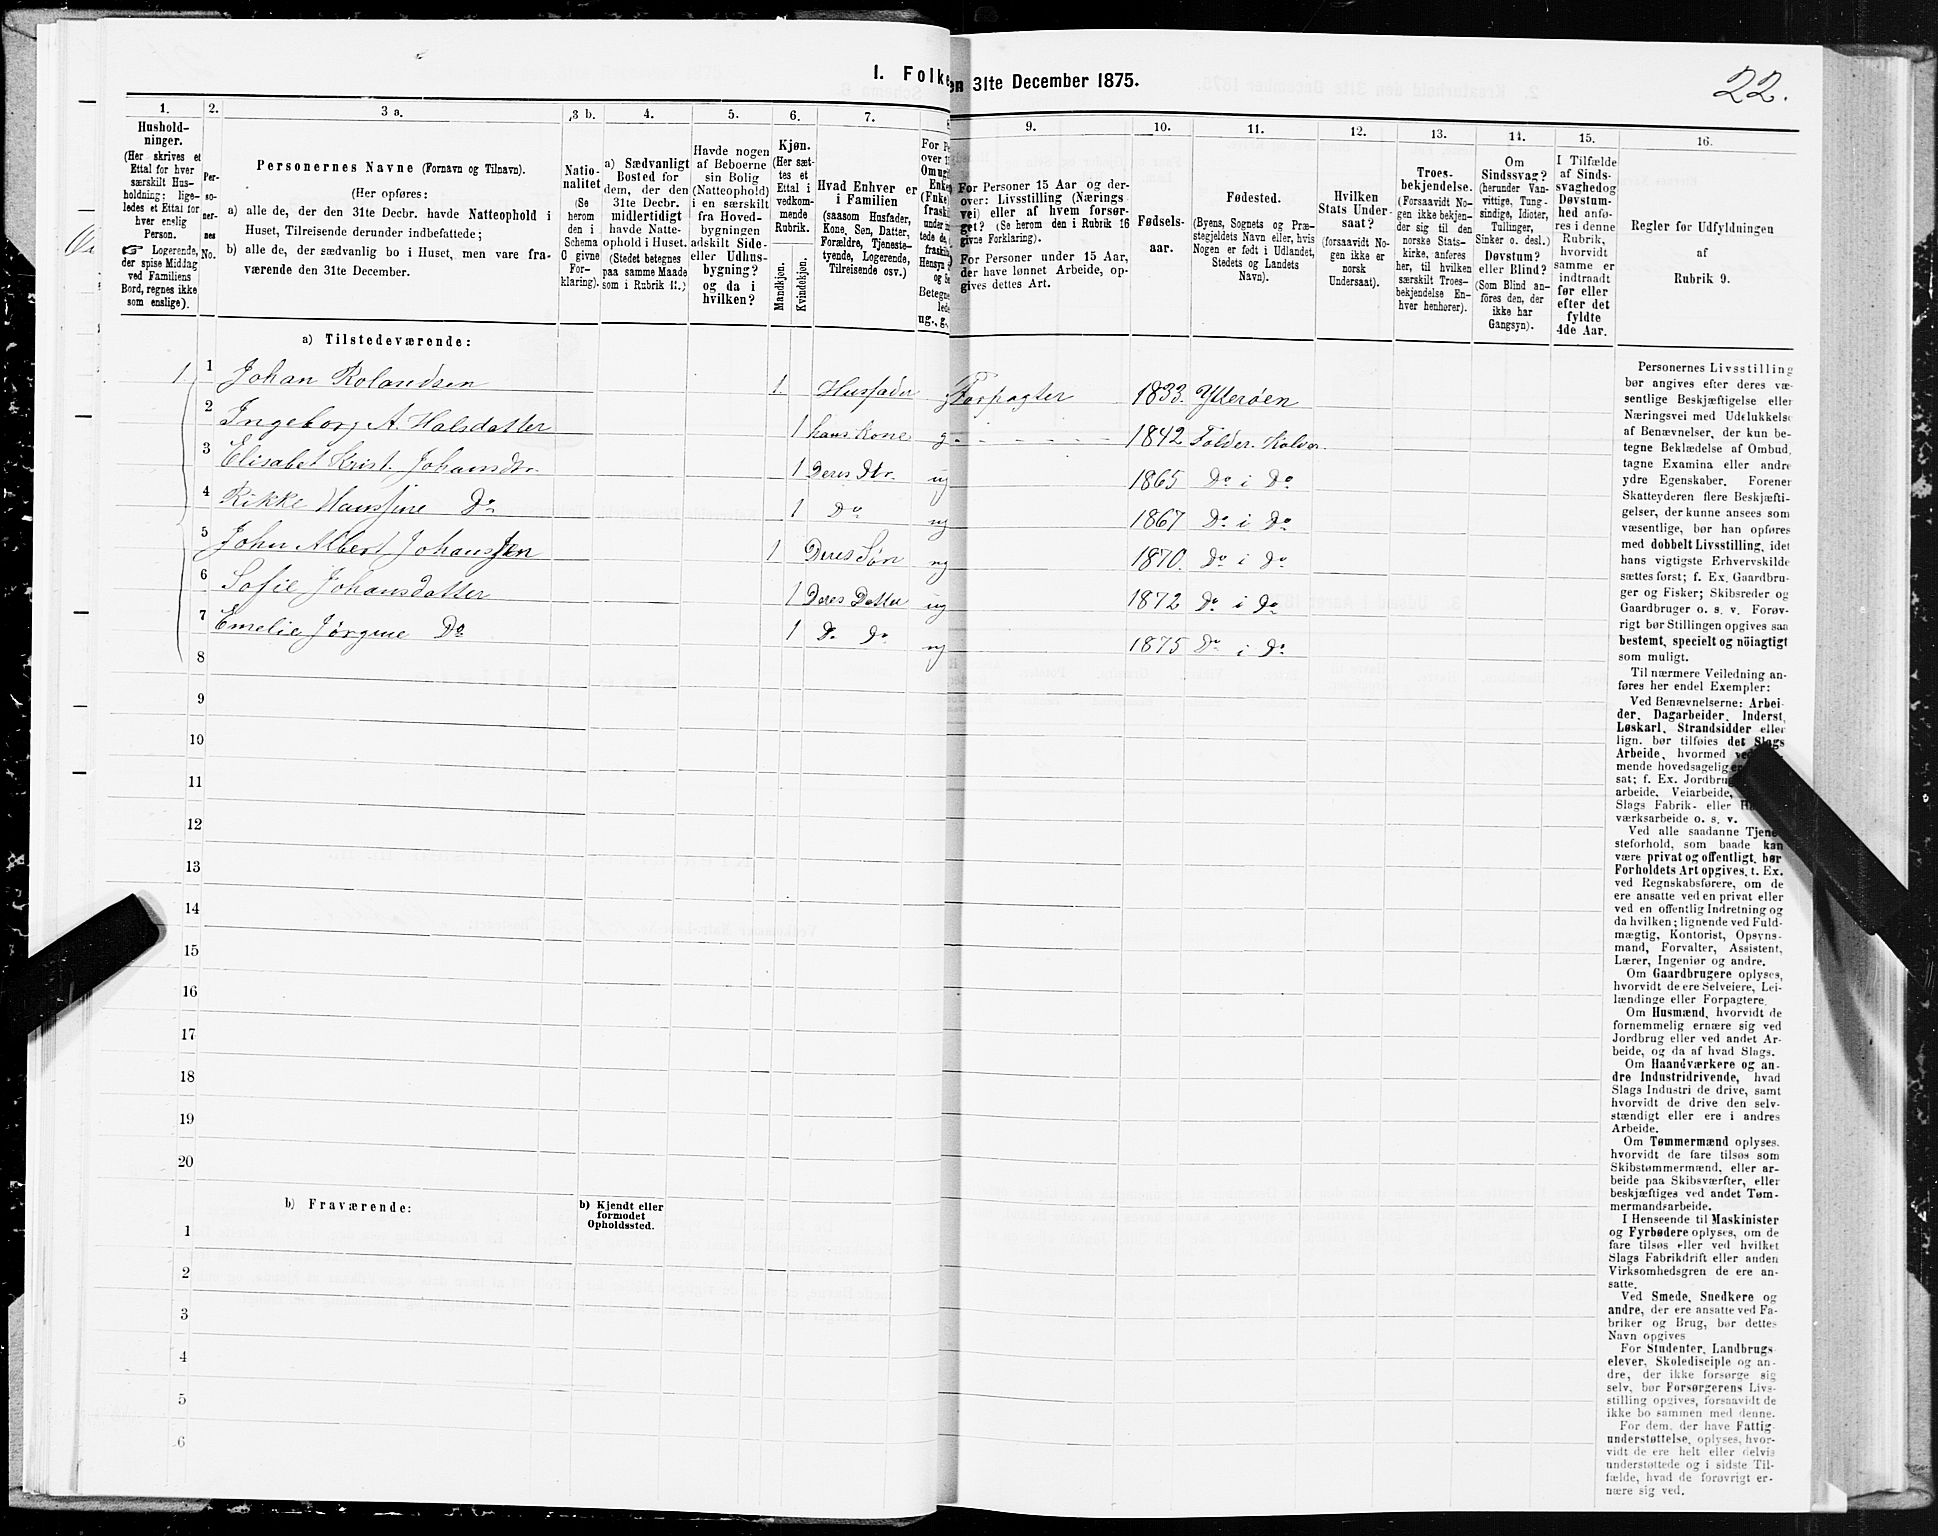 1. Folke
en 31te December 1875.
22.
1. 2. 3 a. 3 b. 4. 5. 6. 7. 9. 10. 11. 12. 13. 14. 15. 16.
Hushold-
ninger.
(Her skrives et
Ettal for hver
særskilt Hus-
holdning; lige-
ledes et Ettal for
hver enslig
Person.
☞ Logerende,
der spise Middag
ved Familiens
Bord, regnes ikke
som enslige).
Per-
so-
ner-
nes
No.
Personernes Navne (Fornavn og Tilnavn).
(Her opføres:
a) alle de, der den 31te Decbr. havde Natteophold i
Huset, Tilreisende derunder indbefattede;
b) alle de, der sædvanlig bo i Huset, men vare fra-
værende den 31te December.
Natio-
nalitet
(Se
herom
den i
Schema
C givne
For-
klaring).
a) Sædvanligt
Bosted for
dem, der den
31te Decbr.
midlertidigt
havde Natte-
ophold i Huset.
(Stedet betegnes
paa samme Maade
som i Rubrik 11.)
Havde nogen
af Beboerne
sin Bolig
(Natteophold)
i en særskilt
fra Hoved-
bygningen
adskilt Side-
eller Udhus-
bygning?
og da i
hvilken?
Kjøn.
(Her sæt-
tes et
Ettal i
vedkom-
mende
Rubrik.
Mandkjøn.
Kvindekjøn.
Hvad Enhver er
i Familien
(saasom Husfader,
Kone, Søn, Datter,
Forældre, Tjeneste-
tyende, Logerende,
Tilreisende osv.)
For P
over 1
Om ug
Enke
(Fnke)
fraski
under
tede de,
fraskil
Hensyn
og S
Betegne
lede
ug., g.,
For Personer 15 Aar og der-
over: Livsstilling (Nærings-
vei) eller af hvem forsør-
get? (Se herom den i Rubrik 16
givne Forklaring).
For Personer under 15 Aar,
der have lønnet Arbeide, op-
gives dettes Art.
Fødsels-
aar.
Fødested.
(Byens, Sognets og Præ-
stegjeldets Navn eller, hvis
Nogen er født i Udlandet,
Stedets og Landets
Navn).
Hvilken
Stats Under-
saat?
(forsaavidt No-
gen ikke er
norsk
Undersaat).
Troes-
bekjendelse.
(Forsaavidt No-
gen ikke bekjen-
der sig til den
norske Stats-
kirke, anføres
her, til hvilken
særskilt Troes-
bekjendelse En-
hver henhører).
Om
Sindssvag?
(herunder Van-
vittige, Tung-
sindige, Idioter,
Tullinger,
Sinker o. desl.)
Døvstum?
eller Blind?
(Som Blind an-
føres den, der
ikke har
Gangsyn).
I Tilfælde
af Sinds-
svaghedog
Døvstum-
hed anfø-
res i denne
Rubrik,
hvorvidt
samme er
indtraadt
før eller
efter det
fyldte
4de Aar.
Regler for Udfyldningen
af
Rubrik 9.
a) Tilstedeværende:
1 1 Johan Rolandsen 1. Husfader g Forpagter 1833. Ytterøen
2 Ingeborg A. Halsdatter 1 hans Kone g - - - - - 1842 Folder. Kolver.
3 Elisabet Krist. Johansdtr. 1 Deres Dtr. ug 1865 Do i Do
4 Rikke Hansine Do 1 Do ug 1867 Do i Do
5 John Albert Johansen 1 Deres Søn ug 1870. Do i Do
6 Sofie Johansdatter 1 Deres Datter ug 1872 Do i Do
7 Emelie Jørgine Do 1 D. Do ug 1875 Do i Do
8
9
10
11
12
13
14
15
16
17
18
19
20
b) Fraværende:
b) Kjendt eller
formodet
Opholdssted.
1
2
3
4
5
6
Personernes Livsstilling
bør angives efter deres væ-
sentlige Beskjæftigelse eller
Næringsvei med Udelukkelse
af Benævnelser, der kun be-
tegne Beklædelse af Ombud,
tagne Examina eller andre
ydre Egenskaber. Forener
Skatteyderen flere Beskjæfti-
gelser, der kunne ansees som
væsentlige, bør han opføres
med dobbelt Livsstilling, idet
hans vigtigste Erhvervskilde
sættes først; f. Ex. Gaardbru-
ger og Fisker; Skibsreder og
Gaardbruger o. s. v. Forøv-
rigt bør Stillingen opgives saa
bestemt, specielt og nöiagtigt
som muligt.
Til nærmere Veiledning an-
føres her endel Exempler:
Ved Benævnelserne: Arbei-
der, Dagarbeider, Inderst,
Løskarl, Strandsidder eller
lign. bør tilføies det Slags
Arbeide, hvormed ved
mende hovedsagelig er
sat; f. Ex. Jordbrug
arbeide, Veiarbeide,
Slags Fabrik- eller Ha
værksarbeide o. s. v.
Ved alle saadanne Tjene
steforhold, som baade kan
være privat og offentligt, bør
Forholdets Art opgives, t. Ex.
ved Regnskabsførere, om de
ere ansatte ved en privat eller
ved en offentlig Indretning og
da hvilken; lignende ved Fuld-
mægtig, Kontorist, Opsyns-
mand, Forvalter, Assistent,
Lærer, Ingeniør og andre.
Om Gaardbrugere oplyses,
hvorvidt de ere Selveiere, Lei-
lændinge eller Forpagtere.
Om Husmænd, hvorvidt de
fornemmelig ernære sig ved
Jordbrug eller ved andet Ar-
beide, og da af hvad Slags.
Om Haandværkere og an-
dre Industridrivende, hvad
Slags Industri de drive, samt
hvorvidt de drive den selv-
stændigt eller ere i andres
Arbeide.
Om Tømmermænd oplyses,
hvorvidt de fare tilsøs som
Skibstømmermænd, eller ar-
beide paa Skibsværfter, eller
beskjæftiges ved andet Tøm-
mermandsarbeide.
I Henseende til Maskinister
og Fyrbødere oplyses, om de
fare tilsøs eller ved hvilket
Slags Fabrikdrift eller anden
Virksomhedsgren de ere an-
satte.
Ved Smede, Snedkere og
andre, der ere ansatte ved Fa-
briker og Brug, bør dettes
Navn opgives
For Studenter, Landbrugs-
elever, Skoledisciple og an-
dre, der ikke forsørge sig
selv, bør Forsørgerens Livs-
stilling opgives, forsaavidt de
ikke bo sammen med denne.
For dem, der have Fattig-
understøttelse, oplyses, hvor-
vidt de ere helt eller delvis
understøttede og i sidste Til-
fælde, hvad de forøvrigt er-
nære sig ved.